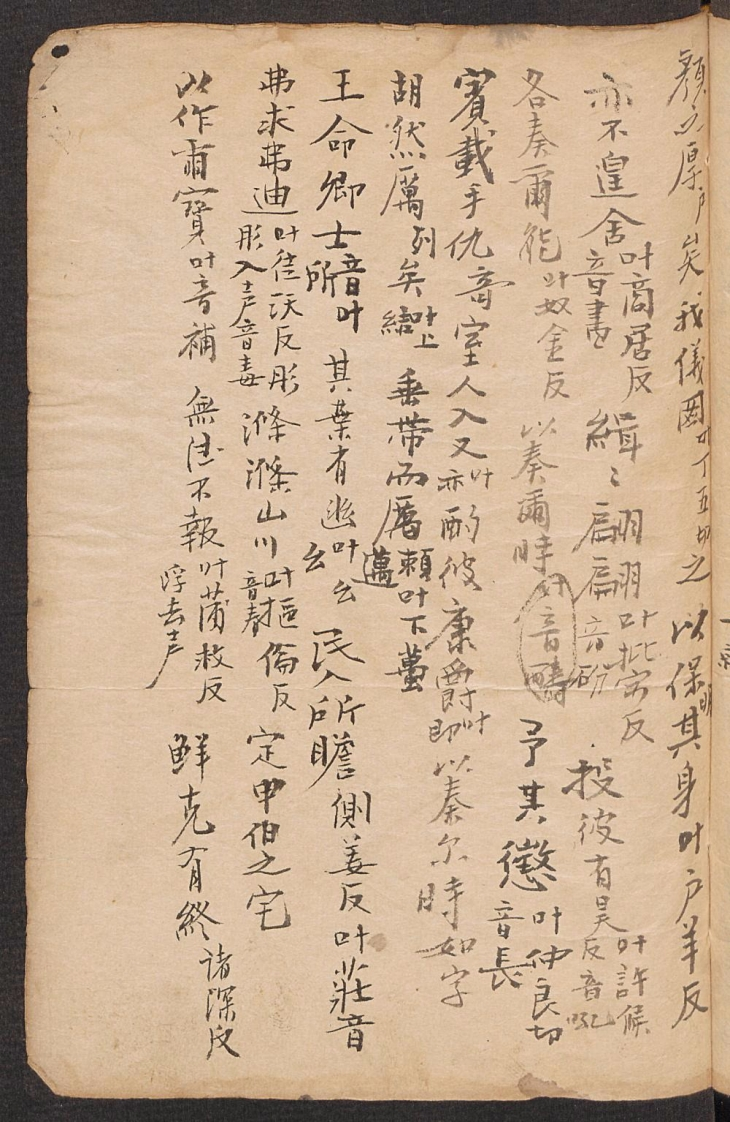 顏之厚矣 我儀圖叶丁五切之 以保明其身叶戶羊反
亦不遑舍叶商居反音書 緝〻翩翩叶批賓反音 投彼有昊叶許候反音吼
各奏爾能叶奴金反 以奏爾時叶音疇 予其懲叶仲良切音長
賓載手仇音 室人入又叶亦 酌彼康爵叶即 以奏尔時如字
胡然厲列矣叶上結 垂帶而厲賴叶下蠆邁
王命卿士音所叶 其葉有幽叶幺幺 民人所瞻側姜反叶莊音
弗求弗迪叶徒沃反彤彤入声音毒 滌滌山川叶樞倫反音春 定申伯之宅
以作爾寶叶音補 無德不報叶蒲救反浮去声 鮮克有終諸深反